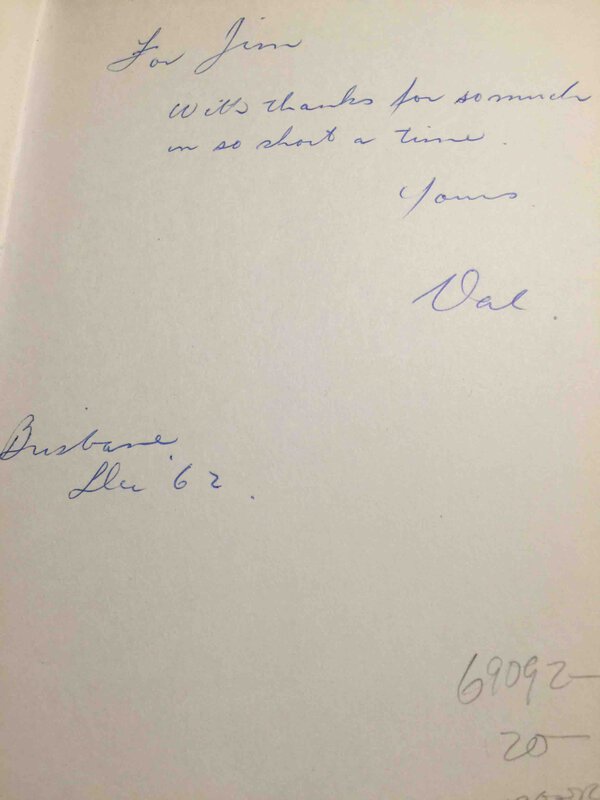 For Jim
With thanks for so much
in so short a time.
Yours
Val.
Brisbane,
Dec '62.
69092-
20-